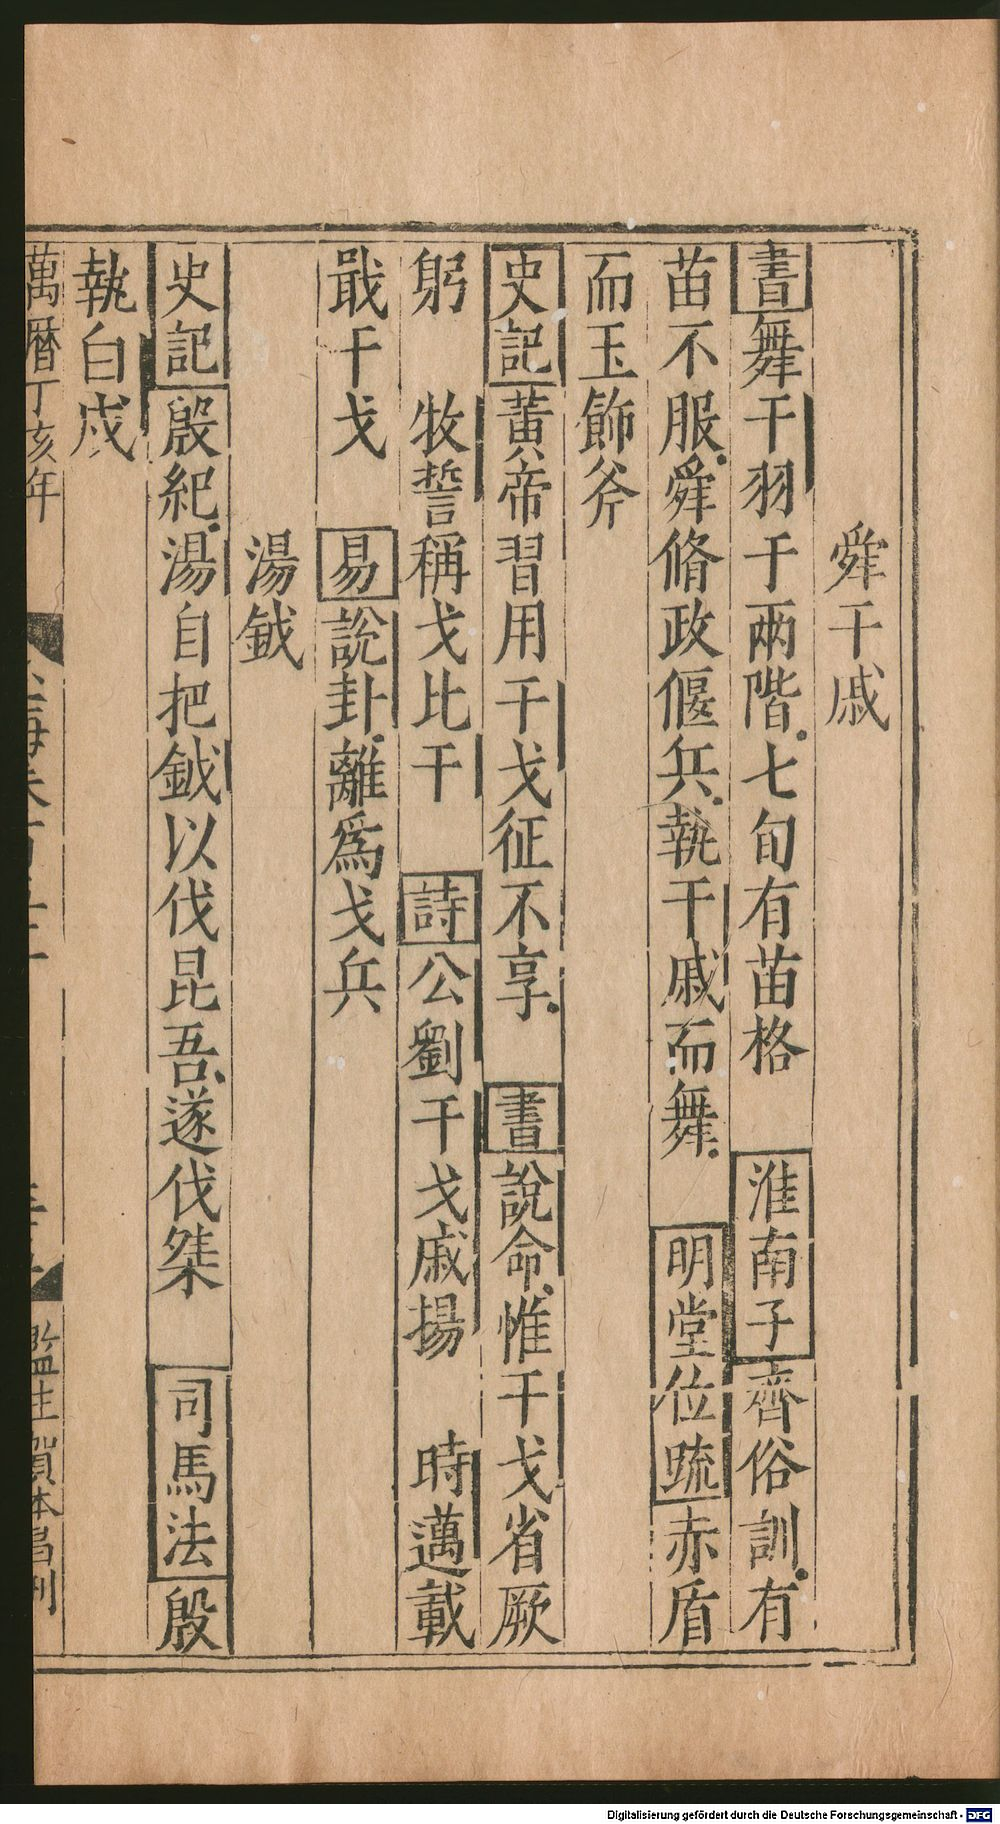 舜干戚
書舞干羽于兩階七旬有苗格　淮南子齊俗訓有
苗不服舜脩政偃兵執干戚而舞　明堂位疏赤盾
而玉飾斧
史記黃帝習用干戈征不享　書說命惟干戈省厥
躬　牧誓稱戈比干　詩公劉干戈戚揚　時邁載
戢干戈　易說卦離爲戈兵
湯鉞
史記殷紀湯自把鉞以伐昆吾遂伐桀　司馬法殷
執白戉
萬曆丁亥年　海　監生賀本昌刊
Digitalisierung gefördert durch die Deutsche Forschungsgemeinschaft - DFG